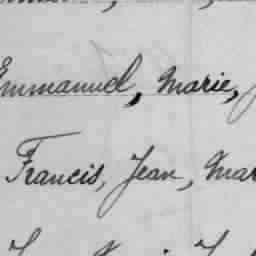 Emmanuel, Marie,
Francis, Jean, Mar